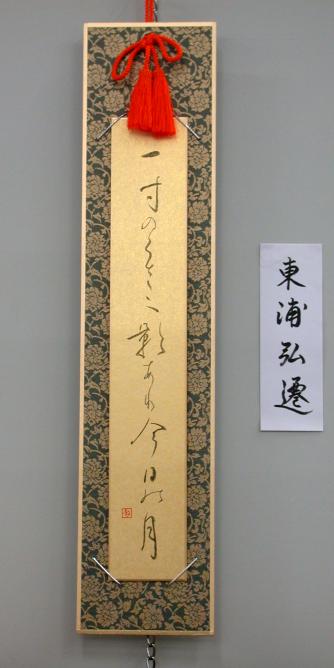 一寸のくさに影あり今日の月
東浦弘遷